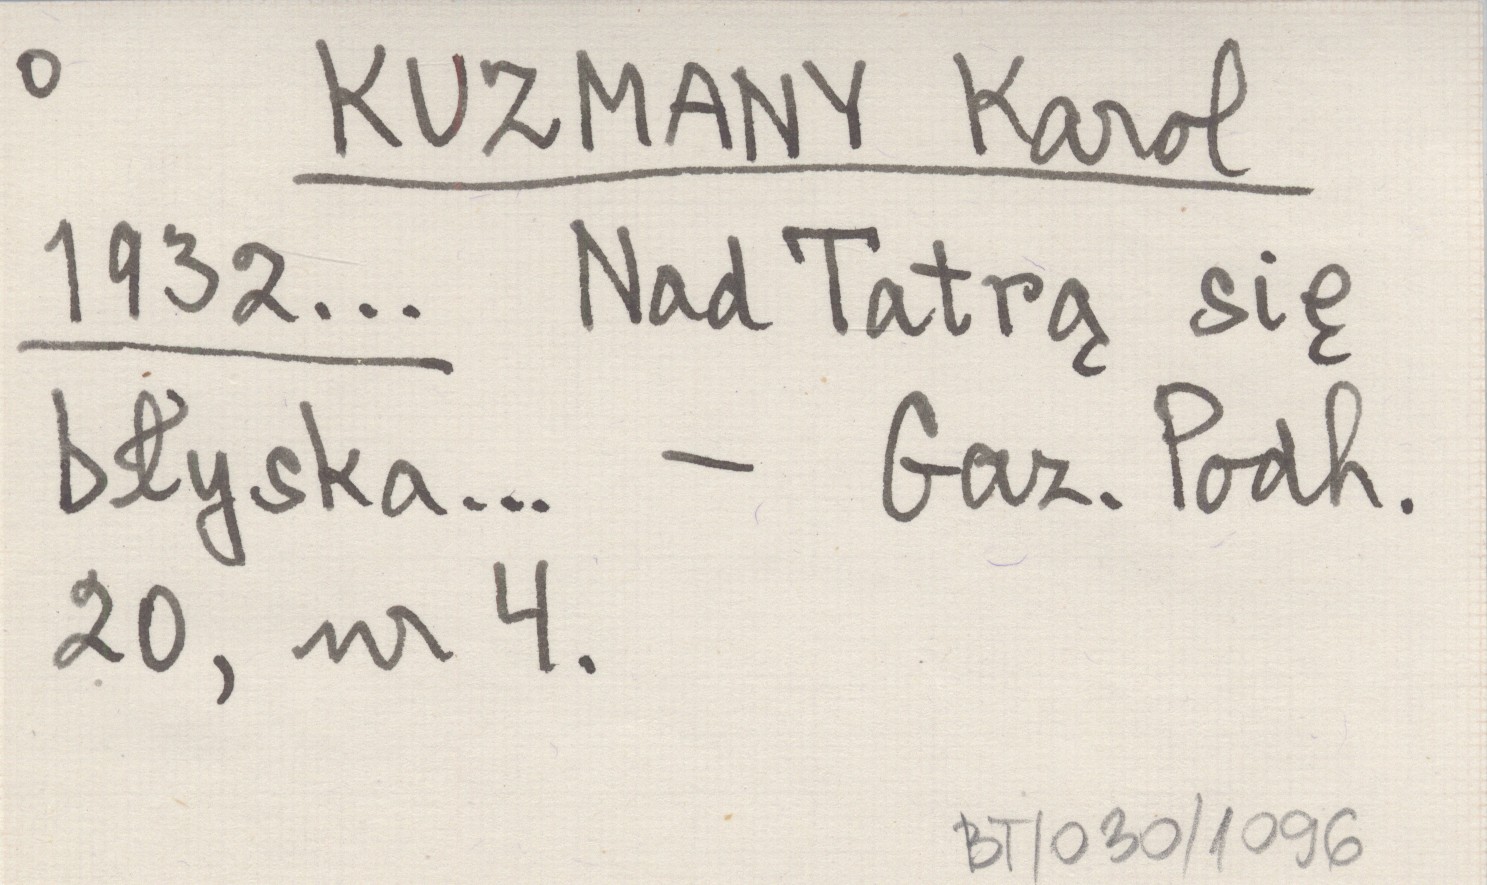 o KUZMANY Karol
1932... Nad Tatrą się
błyska... – Gaz. Podh.
20, nr 4.
BT/030/1096